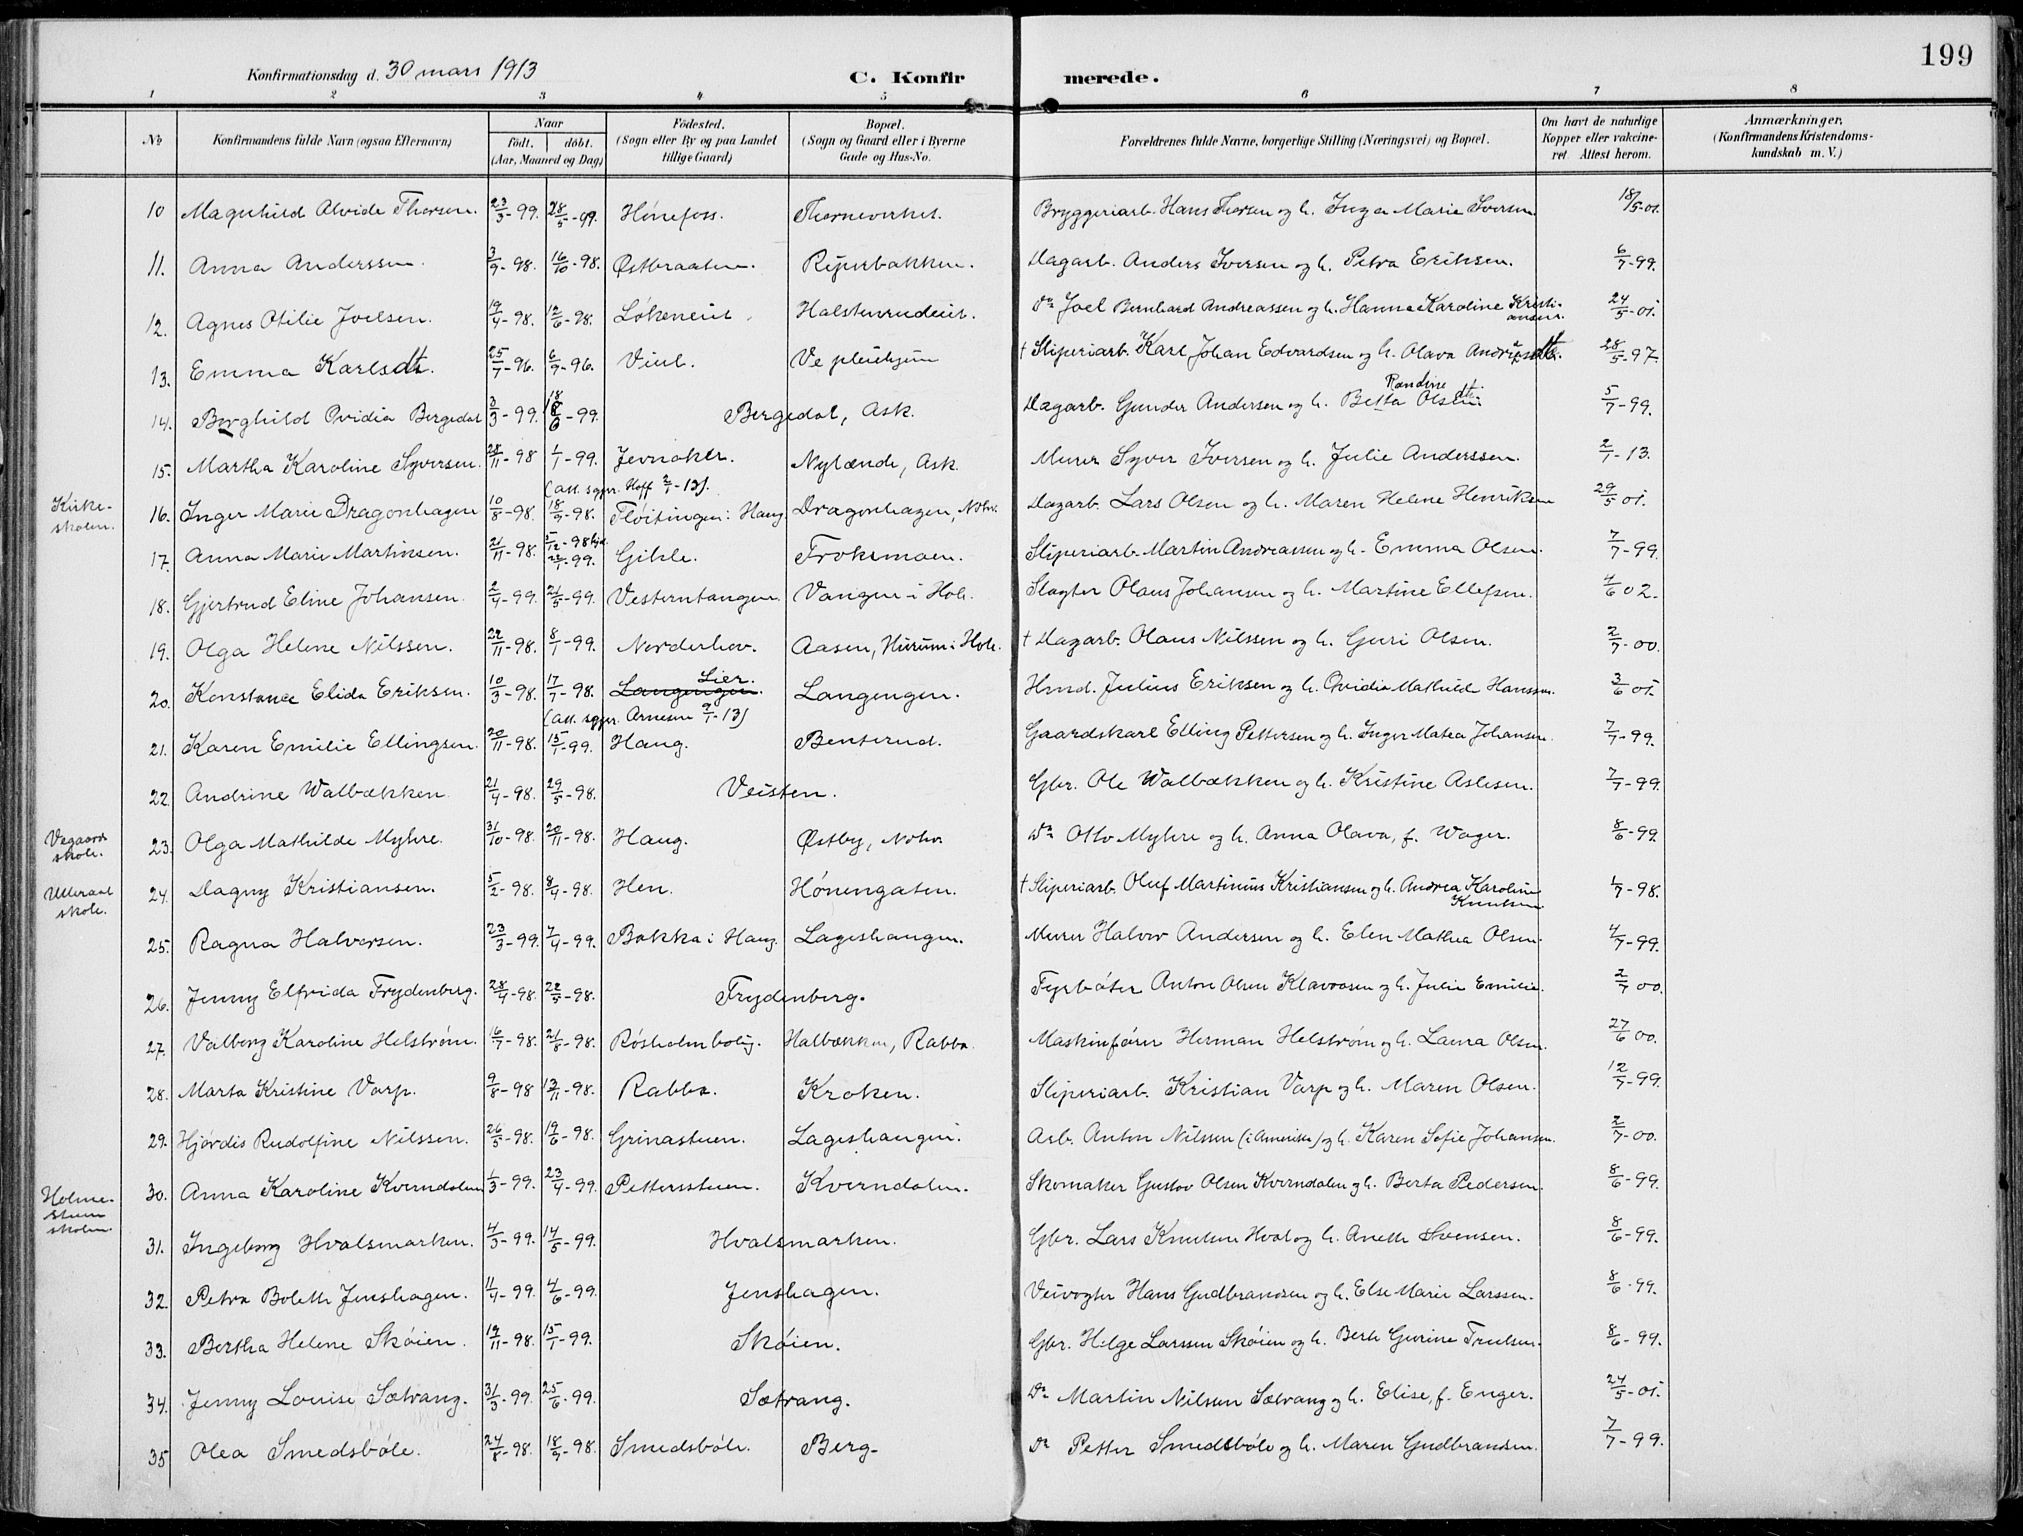 199
Konfirmationsdag d. 30 mars 1913
C. Konfirmerede.
1 2 3 4 5 6 7 8
No
Konfirmandens fulde Navn (ogsaa Efternavn)
Naar
födt. döbt.
(Aar, Maaned og Dag)
Födested.
(Sogn eller By og paa Landet
tillige Gaard)
Bopæl.
(Sogn og Gaard eller i Byerne
Gade og Hus-No.
Forældrenes fulde Navne, borgerlige Stilling (Næringsvei) og Bopæl.
Om havt de naturlige
Kopper eller vakcine-
ret. Attest herom.
Anmærkninger,
(Konfirmandens Kristendoms-
kundskab m. V.)
10 Magnhild Alvide Thorsen. 23/3-99. 28/5-99. Hönefoss. Thorneverket. Bryggeriarb. Hans Thorsen og h. Inga Marie Iversen 18/5-01.
11. Anna Anderssen. 3/9-98. 16/10-98. Østbraaten. Riperbakken. Dagarb. Anders Iversen og h. Petra Eriksen. 6/7-99.
12. Agnes Otilie Joelsen. 19/4-98. 12/6-98. Løkeneie. Halstenrudeie. Do Joel Bernhard Andreassen og h. Hanna Karoline Kristi-
ansen. 24/5-01.
13. Emma Karlsdt. 25/7-96. 6/9-96. Viul. Ve pleiehjem † Sliperiarb. Karl Johan Edvardsen og h. Olava Andersdtr. 28/5-97.
14. Borghild Ovidia Bergedal 3/3-99. 18/6-99 Bergedal, Ask. Dagarb. Gunder Andersen og h. Betta Randine Olsdt. 5/7-99.
15. Martha Karoline Syversen. 28/11-98 1/1-99. Jevnaker. Nylænde, Ask. Murer Syver Iversen og h. Julie Anderssen. 2/1-13.
(att. sgpr. Hoff 2/1-13).
Kirke-
skolen.
16. Inger Marie Dragonhagen 10/8-98. 18/9-98. Fløitingen i Haug. Dragonhagen, Nohv. Dagarb. Lars Olsen og h. Maren Helene Henriksen 29/5 01.
17. Anna Marie Martinsen. 21/11-98. 5/12-98 hjd. 22/1-99. Gihle. Froksmoen. Sliperiarb. Martin Andreassen og h. Emma Olsen. 7/7-99.
18. Gjertrud Eline Johansen 2/4-99. 21/5-99. Vesterntangen. Vangen i Hole. Slagter Olaus Johansen og h. Martine Ellefsen. 4/6 02.
19. Olga Helene Nilssen. 22/11-98. 8/1-99. Norderhov. Aasen, Hurum i Hole. † Dagarb. Olaus Nilssen og h. Guri Olsen. 2/7-00.
20. Konstance Elida Eriksen. 10/3-98. 17/7-98. Langengen. Lier. Langengen. Hmd. Julius Eriksen og h. Ovidia Mathilde Hanssen. 3/6 01.
(att. sgpr. Arnesen 9/1-13)
21. Karen Emilie Ellingsen. 20/11-98. 15/1-99. Haug. Benterud. Gaardskarl Elling Pettersen og h. Inger Matea Johansen. 7/7-99.
22. Andrine Walbækken. 21/4-98. 29/5-98. Veisten. Gbr. Ole Walbækken og h. Kristine Aslesen. 7/7-99.
Vegaard
skole.
23. Olga Mathilde Myhre. 31/10-98. 20/11-98. Haug. Østby, Nohv. Do Otto Myhre og h. Anna Olava, f. Wager. 8/6-99.
Ulleraal
skole.
24. Dagny Kristiansen. 5/2-98. 8/4-98. Hen. Hönengaten. † Sliperiarb. Oluf Martinius Kristiansen og h. Andrea Karoline
Knutsen 1/7-98.
25. Ragna Halversen. 23/3-99. 7/4-99. Bakka i Haug. Lageshaugen. Murer Halvor Andersen og h. Elen Mathea Olsen. 4/7-99.
26. Jenny Elfrida Frydenberg. 28/4-98. 22/5-98. Frydenberg. Fyrböter Anton Olsen Klavoasen og h. Julie Emilie. 2/7 00.
27. Valborg Karoline Helström. 16/7-98. 21/8-98. Rösholmbolig. Halbækken, Rabba. Maskinförer Herman Helström og h. Laura Olsen. 27/6 00.
28. Marta Kristine Varp. 9/8-98 13/11-98. Rabba. Kroken. Sliperiarb. Kristian Varp og h. Maren Olsen. 12/7-99.
29. Hjördis Rudolfine Nilssen. 26/5-98. 19/6-98. Grinastuen. Lageshaugen. Arb. Anton Nilssen (i Amerika) og h. Karen Sofie Johansen. 2/7-00.
Holme-
stuen
skolen.
30. Anna Karoline Kverndalen 1/3-99. 23/4-99. Petterstuen. Kverndalen. Skomaker Gustav Olsen Kverndalen og h. Berta Pedersen. 8/6-99.
31. Ingeborg Hvalsmarken. 4/3-99. 14/5-99. Hvalsmarken. Gbr. Lars Knutsen Hval og h. Anette Svensen. 8/6-99.
32. Petra Bolette Jenshagen. 11/4-99. 4/6-99. Jenshagen. Veivogter Hans Gudbrandsen og h. Else Marie Larssen. 8/6-99.
33. Bertha Helene Skøien. 19/11-98. 15/1-99. Skøien. Gbr. Helge Larssen Skøien og h. Berte Gurine Truelsen. 8/6-99.
34. Jenny Louise Sætrang. 31/3-99. 25/6-99. Sætrang. Do Martin Nilsen Sætrang og h. Elise, f. Enger. 24/5-01.
35 Olea Smedsböle. 24/8-98. 18/9-98. Smedsböle. Berg- Do Petter Smedsböle og h. Maren Gudbrandsen. 7/7-99.